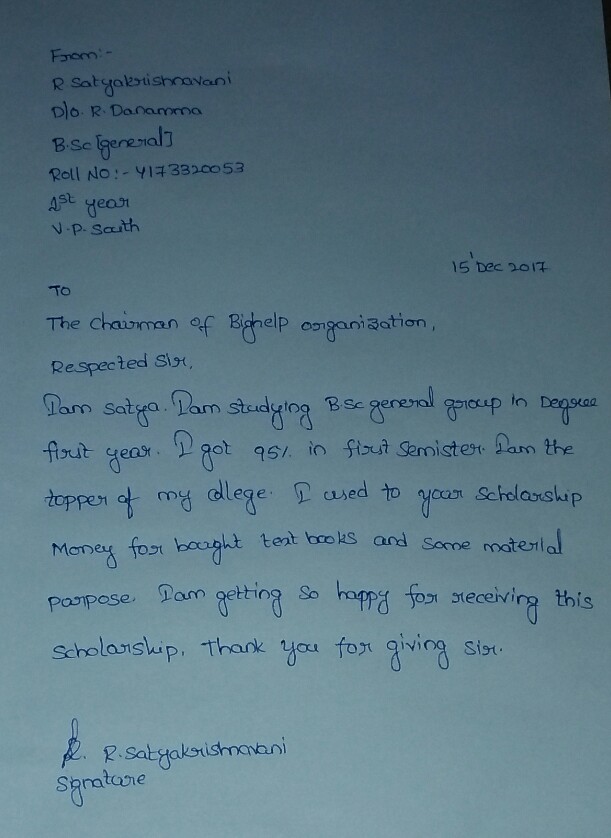 From:-
R Satyakrishnavani
D/o. R. Danamma
B.Sc [general]
Roll No:- 4173320053
1st year
V.P. South
15 Dec 2017
To
The chairman of Bighelp organization,
Respected Sir,
Iam satya. Iam studying B.sc general group in Degree
first year. I got 95% in first semister. Iam the
topper of my college. I used to your scholarship
Money for bought text books and some material
parpose. Iam getting so happy for receiving this
scholarship, thank you for giving sir.
R. R.Satyakrishnavani
Signature